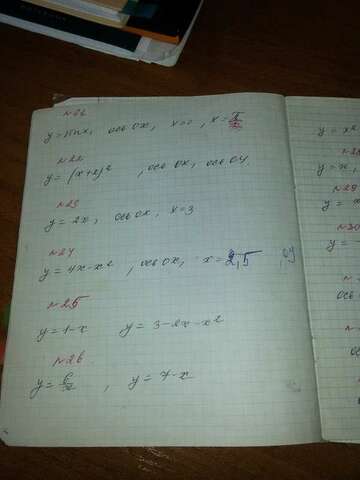 N21
y=sinx, ось OX, x=0, x=π/2
N22
y=(x+2)², ось OX, ось OY.
N23
y=2x, ось OX, x=3
N24
y=4x-x², ось OX, x=2,5, OY
N25
y=1-x y=3-2x-x²
N26
y=6/x, y=7-x
y=x²
y=x,
N29
y=
N30
y=
ось